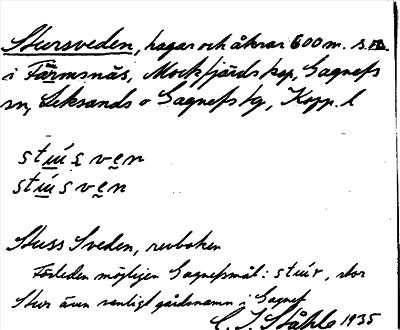 Stursveden, hagar och åkrar 600 m. s.
i Färmsnäs, Mockfjärds kap, Gagnefs
sn, Leksands o Gagnefs tg, Kopp. l
stúsven
stúsven
Stuss Sveden, revboken
Förleden möjligen Gagnefsmål: stur, stor
Stur även vanligt gårdsnamn i Gagnef
C. I. Ståhle 1935